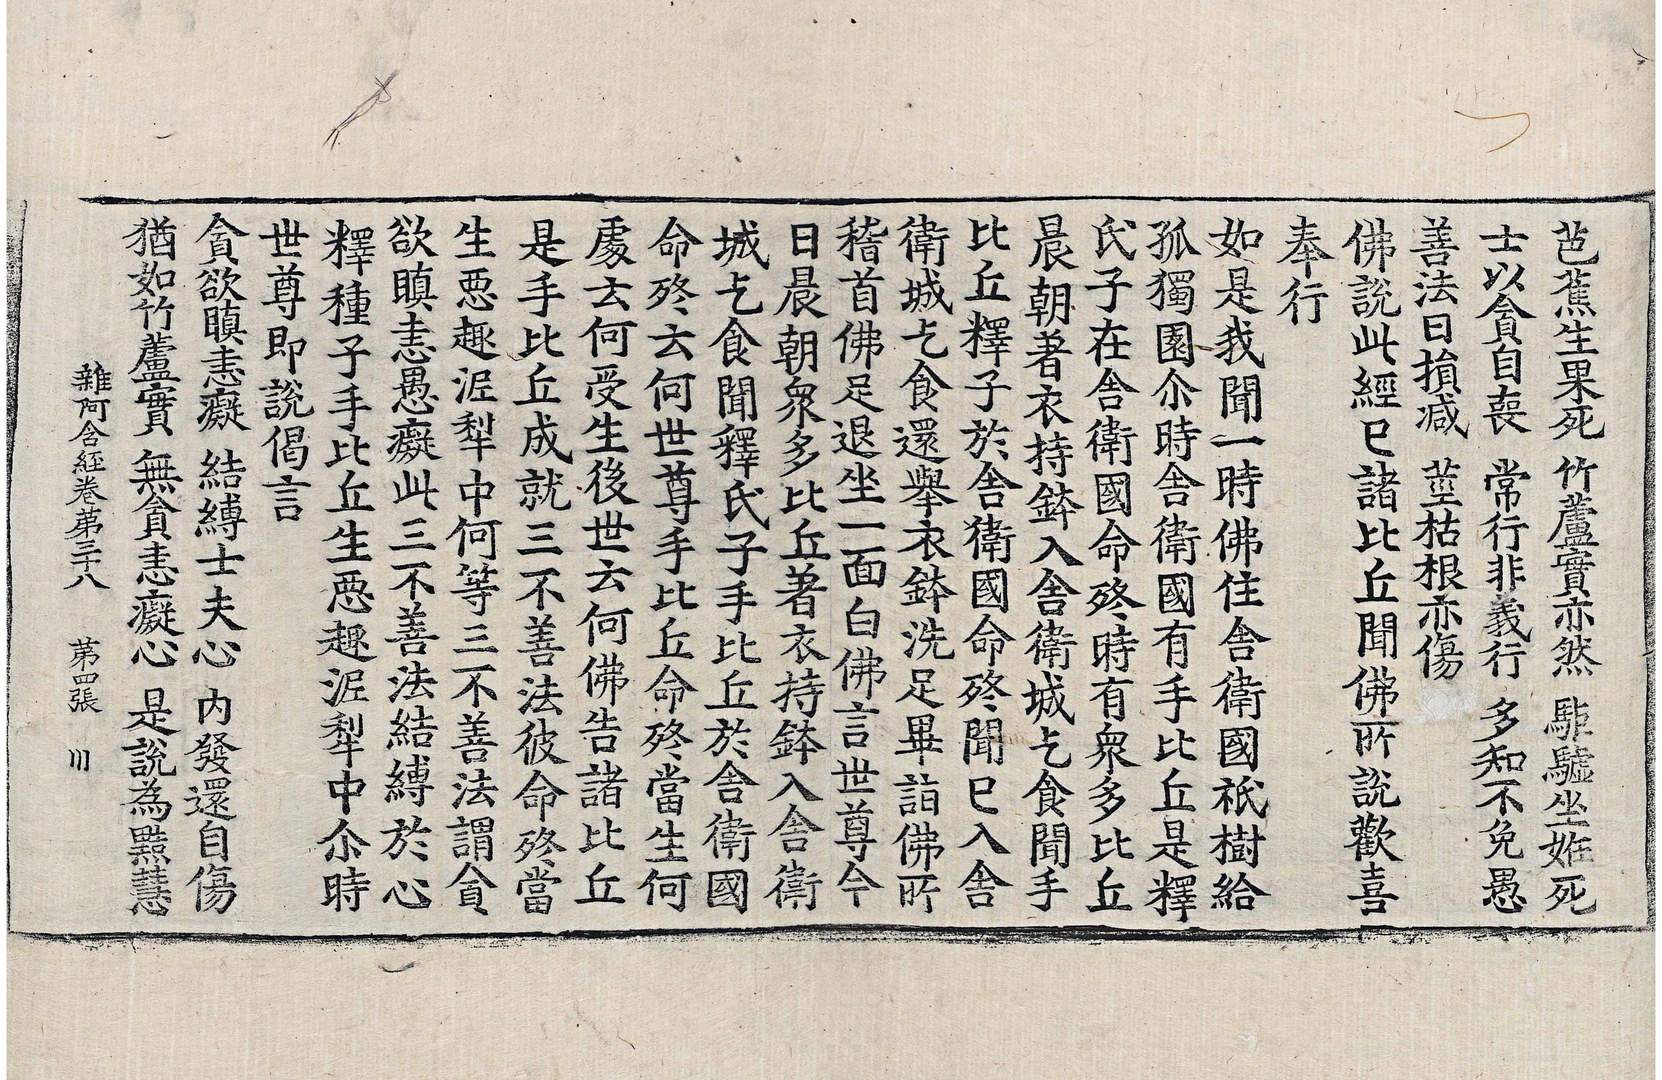 芭蕉生果死 竹蘆實亦然 駏驉坐姙死
士以貪自喪 常行非義行 多知不免愚
善法日損減 莖枯根亦傷
佛說此經已諸比丘聞佛所說歡喜
奉行
如是我聞一時佛住舍衛國祇樹給
孤獨園尒時舍衛國有手比丘是釋
氏子在舍衛國命終時有衆多比丘
晨朝著衣持鉢入舍衛城乞食聞手
比丘釋子於舍衛國命終聞已入舍
衛城乞食還擧衣鉢洗足畢詣佛所
稽首佛足退坐一面白佛言世尊今
日晨朝衆多比丘著衣持鉢入舍衛
城乞食聞釋氏子手比丘於舍衛國
命終云何世尊手比丘命終當生何
處云何受生後世云何佛告諸比丘
是手比丘成就三不善法彼命終當
生惡趣泥犁中何等三不善法謂貪
欲瞋恚愚癡此三不善法結縛於心
釋種子手比丘生惡趣泥犁中尒時
世尊即說偈言
貪欲瞋恚癡 結縛士夫心 內發還自傷
猶如竹蘆實 無貪恚癡心 是說為黠慧
雜阿含經卷第三十八 第四張 川